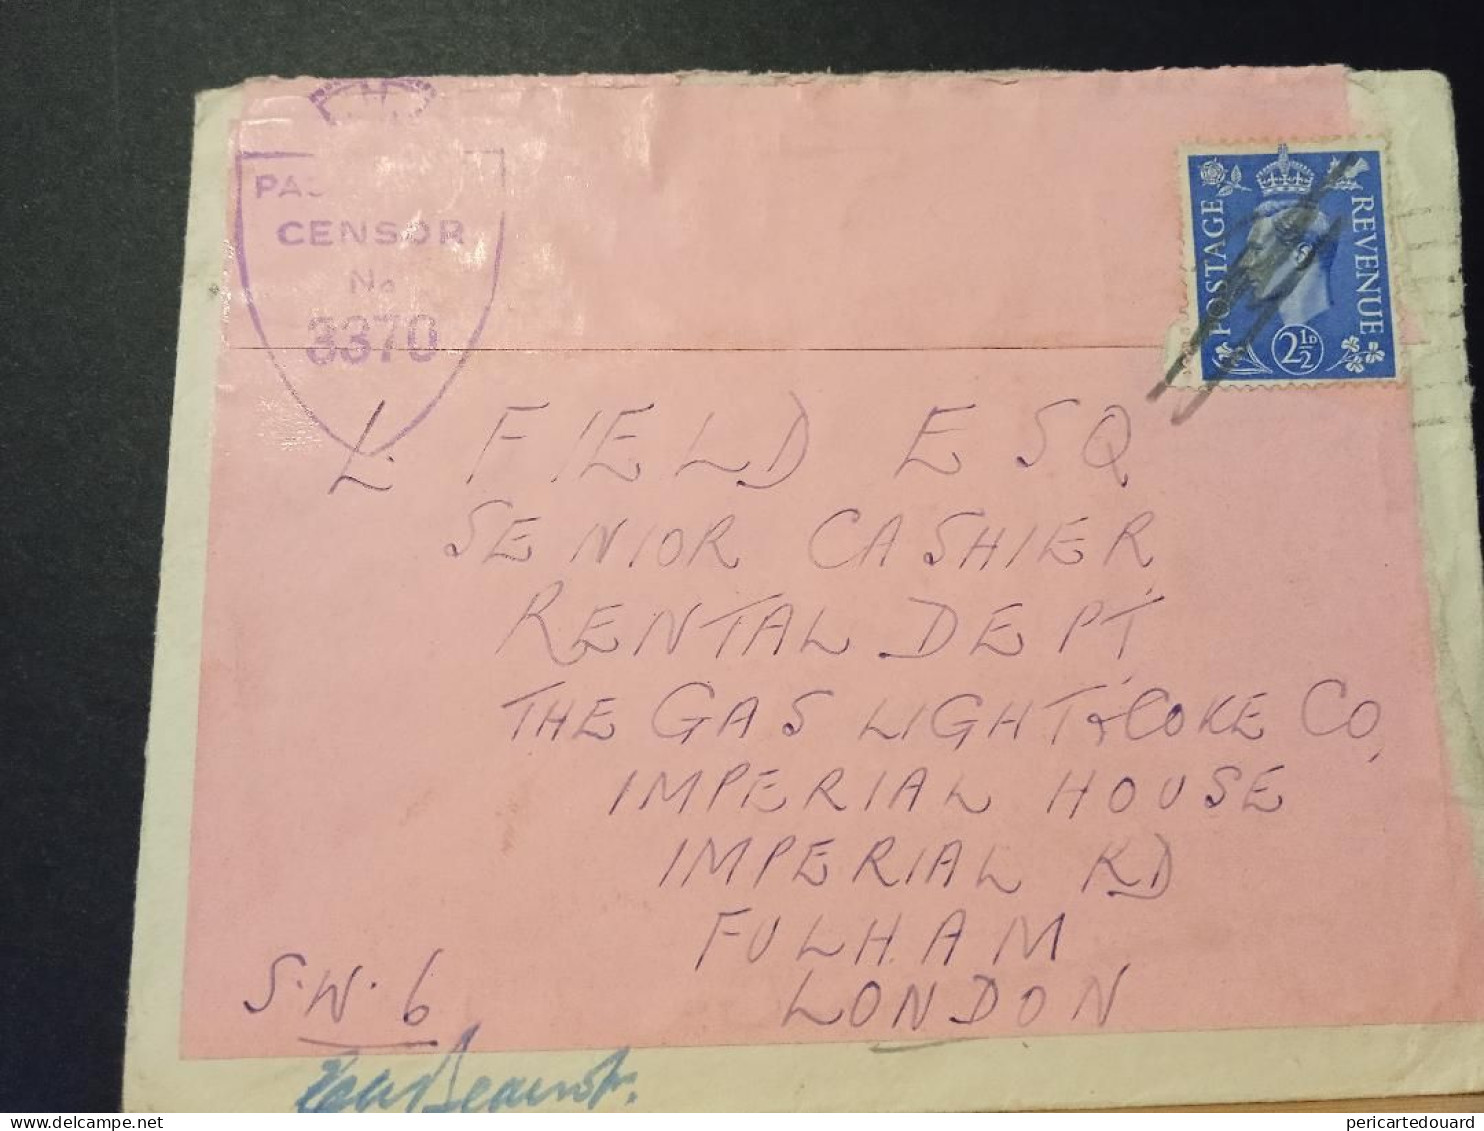 CENSOR
No
3370
POSTAGE
REVENUE
2½D
L. FIELD ESQ
SENIOR CASHIER
RENTAL DEPT
THE GAS LIGHT & COKE CO,
IMPERIAL HOUSE
IMPERIAL RD
FULHAM
S.W.6
LONDON
delcampe.net
pericartedouard